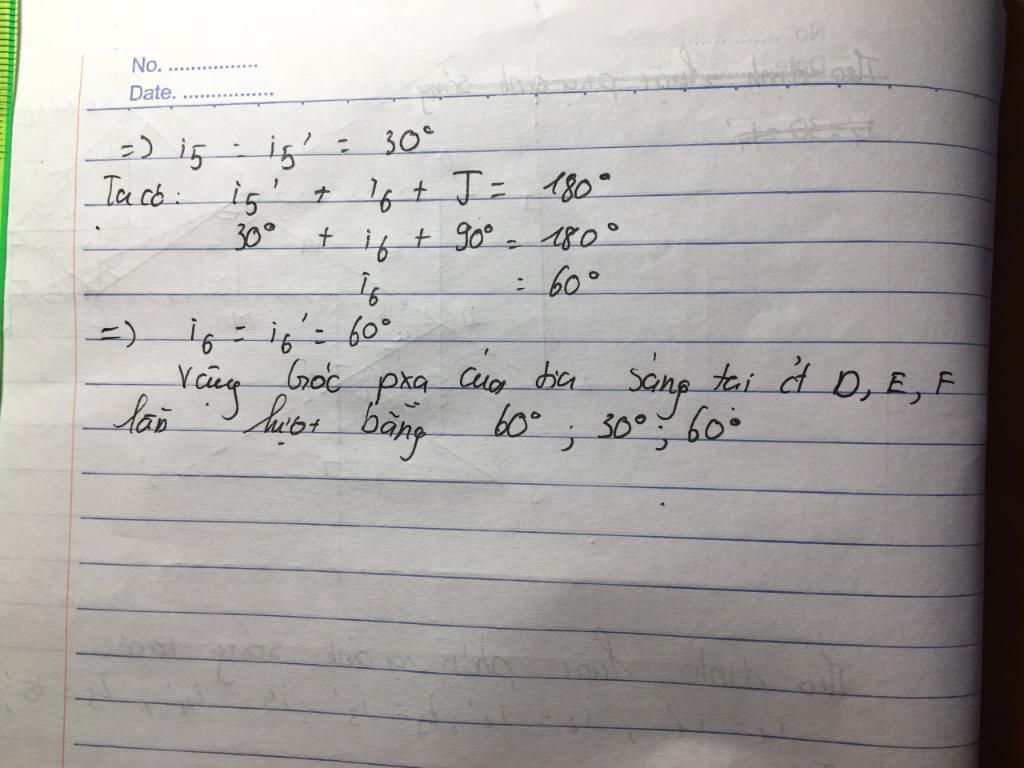 No. ................
Date. ................
=) i5 = i5' = 30°
Ta có: i5' + i6 + J = 180°
30° + i6 + 90° = 180°
i6 = 60°
=) i6 = i6' = 60°
Vậy góc pxa của tia sáng tại ở D, E, F
lần lượt bằng 60° ; 30° ; 60°